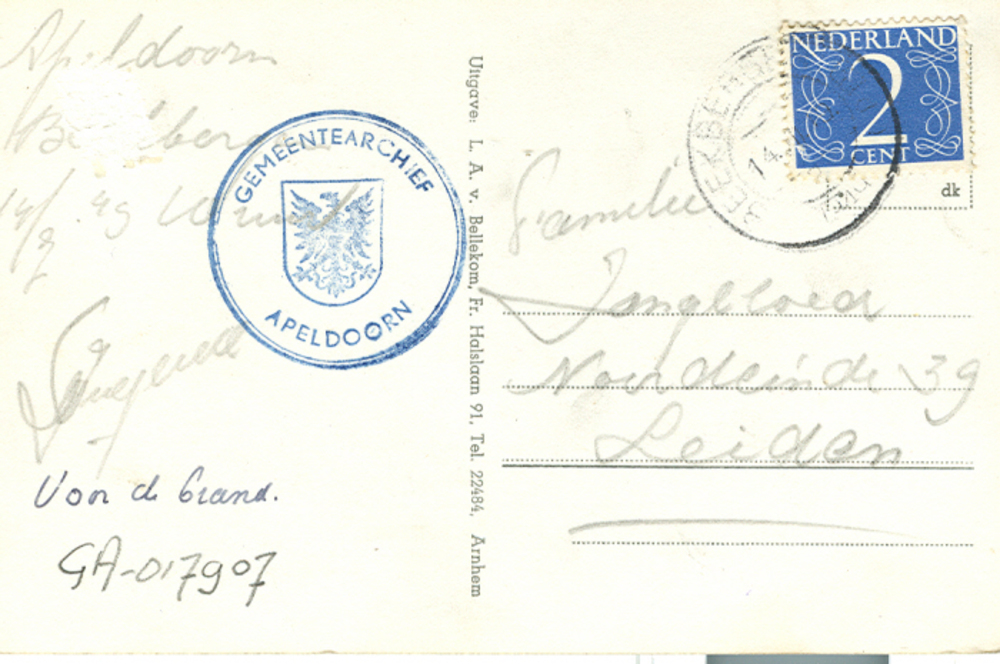 Apeldoorn
14/8 49
GEMEENTEARCHIEF
APELDOORN
Von de brand.
GA-017907
Uitgave: L. A. v. Bellekom, Fr. Halslaan 91, Tel. 22484, Arnhem
NEDERLAND
2
CENT
BEEKBERGEN
14
dk
Familie
Jongbloed
Noordeinde 39
Leiden